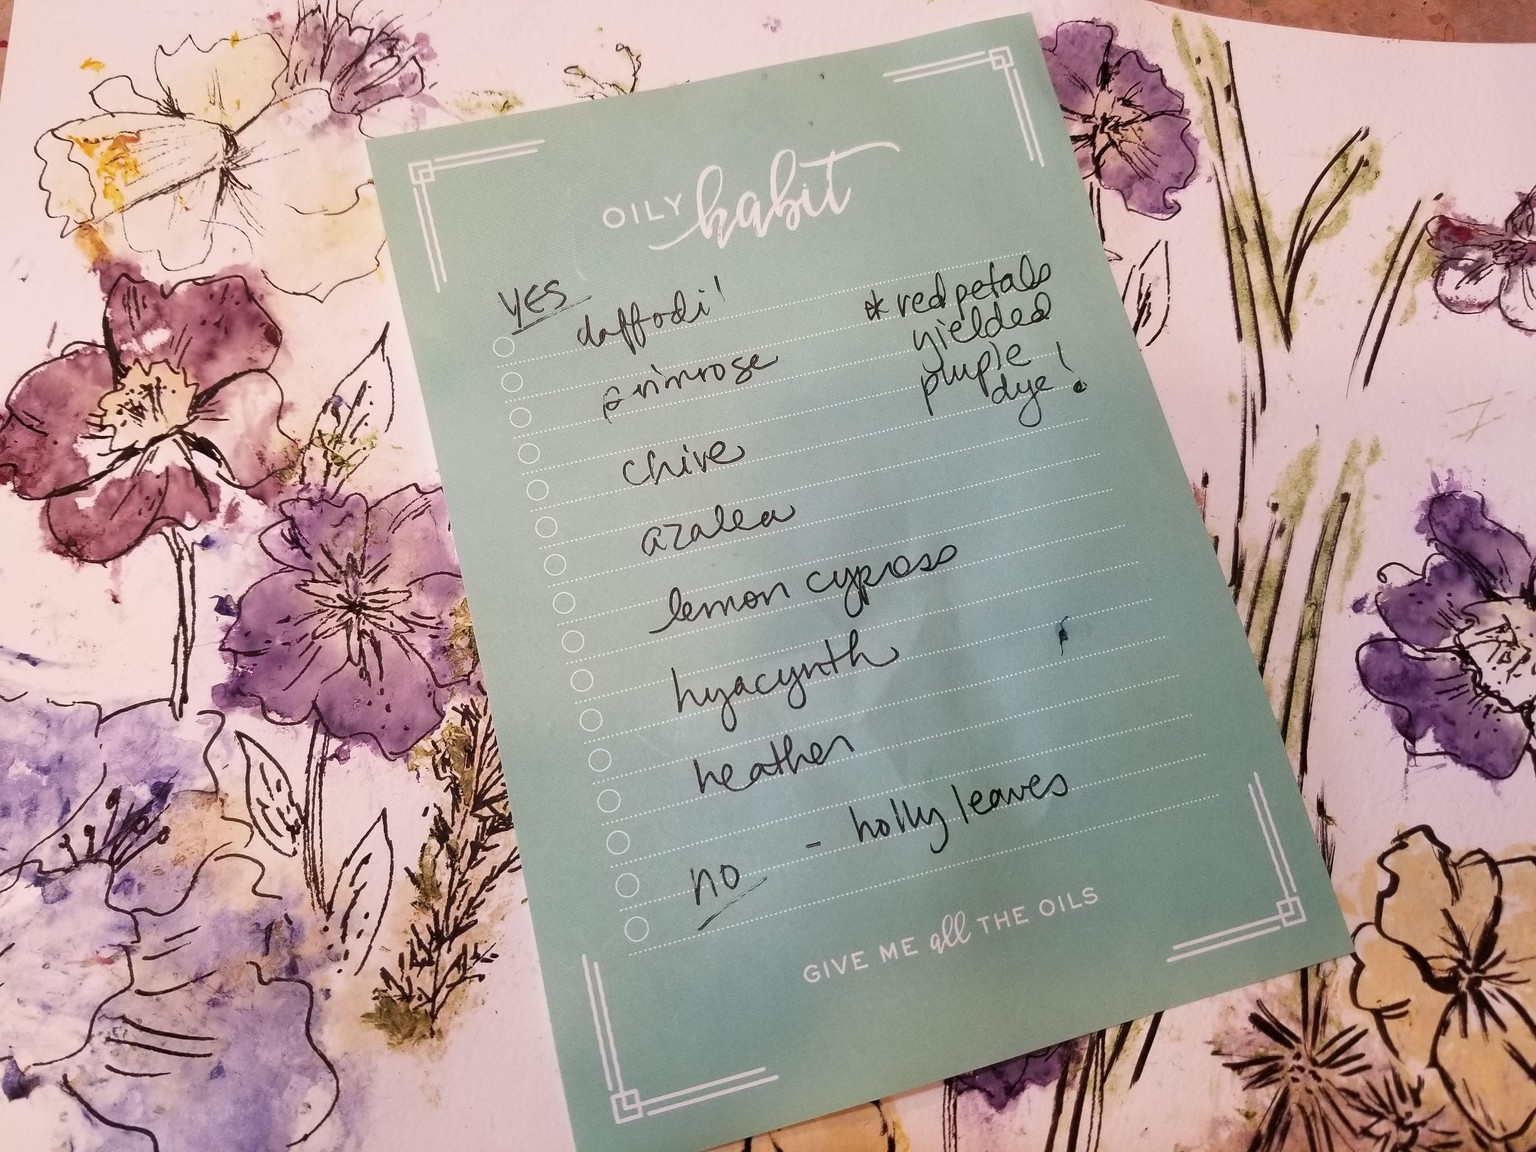 OILY habit
YES
daffodil
primrose
chive
azalea
lemon cypress
hyacynth
heather
no - holly leaves
* red petals
yielded
purple
dye!
GIVE ME all THE OILS